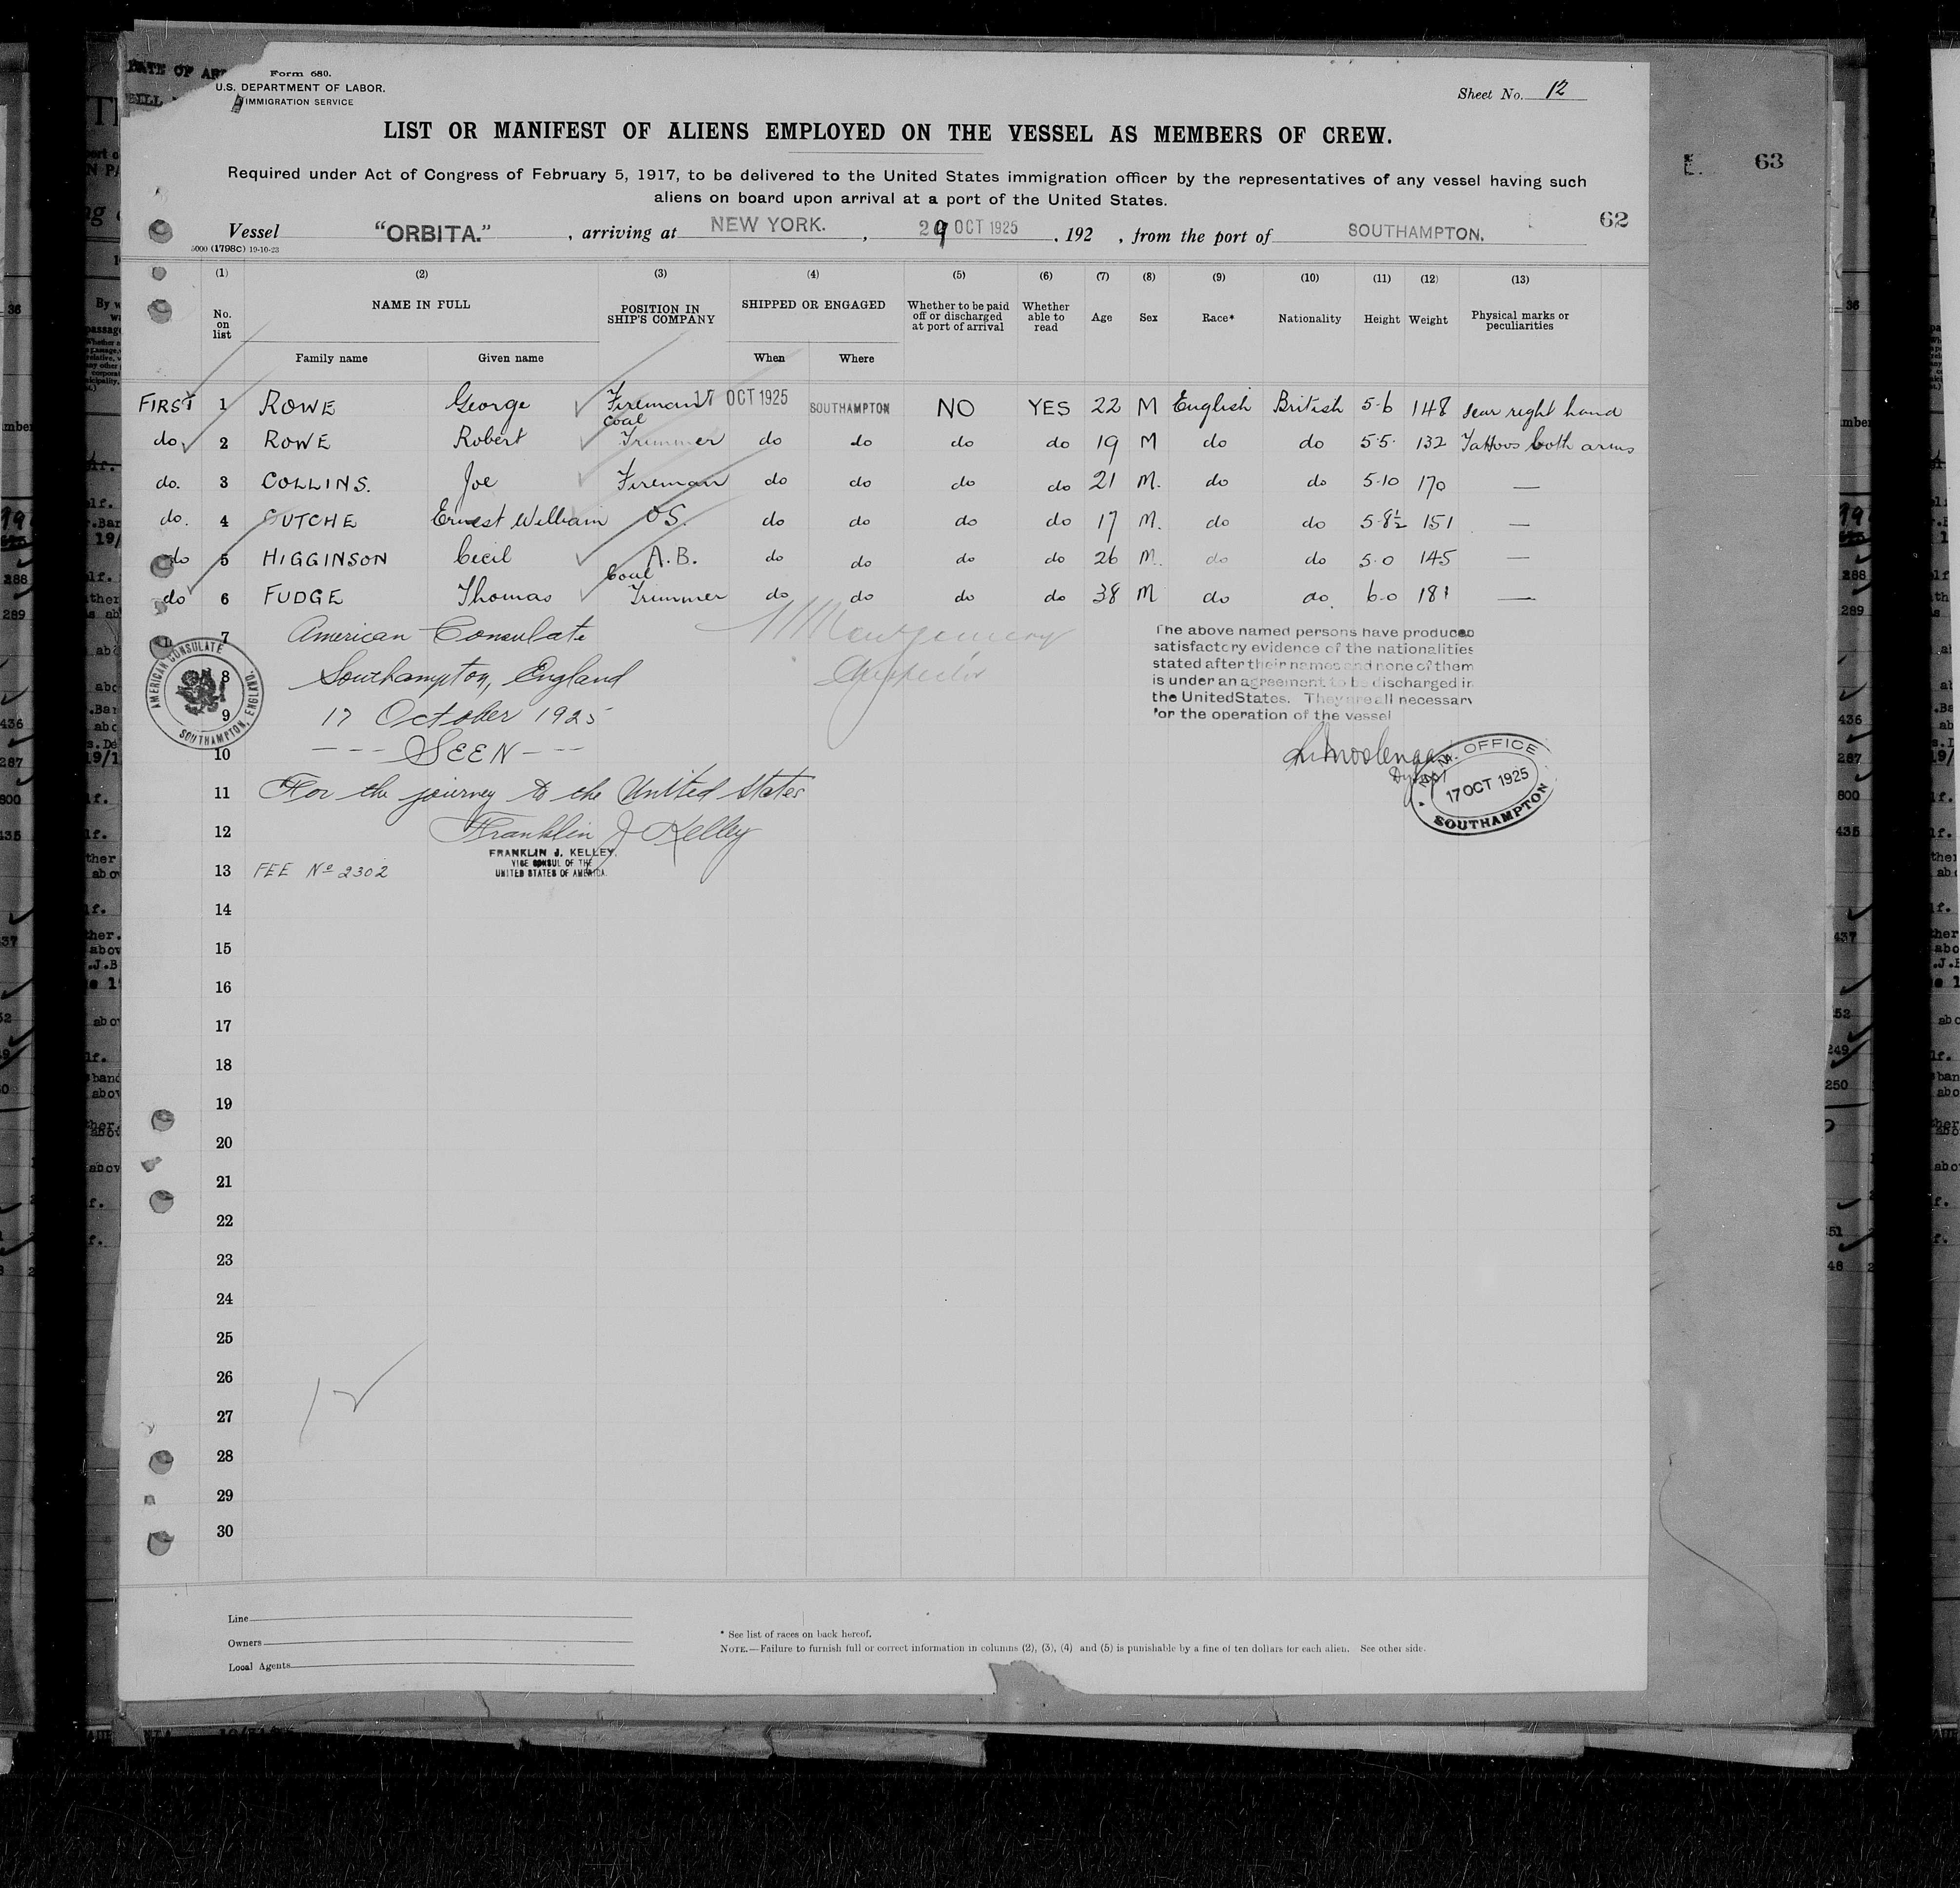 Form 680.
U.S. DEPARTMENT OF LABOR.
IMMIGRATION SERVICE
Sheet No. 12
LIST OR MANIFEST OF ALIENS EMPLOYED ON THE VESSEL AS MEMBERS OF CREW.
Required under Act of Congress of February 5, 1917, to be delivered to the United States immigration officer by the representatives of any vessel having such
aliens on board upon arrival at a port of the United States.
E. 63
62
Vessel "ORBITA." , arriving at NEW YORK. , 29 OCT 1925 , 192 , from the port of SOUTHAMPTON.
5000 (1798C) 19-10-23
(1) (2) (3) (4) (5) (6) (7) (8) (9) (10) (11) (12) (13)
No. on list NAME IN FULL POSITION IN SHIP'S COMPANY SHIPPED OR ENGAGED Whether to be paid off or discharged at port of arrival Whether able to read Age Sex Race* Nationality Height Weight Physical marks or peculiarities
Family name Given name When Where
FIRST 1 ROWE George Fireman 17 OCT 1925 SOUTHAMPTON NO YES 22 M English British 5-6 148 scar right hand
do 2 ROWE Robert Coal Trimmer do do do do 19 M do do 5.5. 132 Tattoos both arms
do. 3 COLLINS. Joe Fireman do do do do 21 M. do do 5-10 170 —
do. 4 GUTCHE Ernest William O.S. do do do do 17 M. do do 5-8½ 151 —
do 5 HIGGINSON Cecil A.B. do do do do 26 M. do do 5.0 145 —
do 6 FUDGE Thomas Coal Trimmer do do do do 38 M do do. 6-0 181 —
7 American Consulate
8 Southampton, England
9 17 October 1925
10 --- SEEN ---
11 For the journey to the United States
12 Franklin J Kelley
FRANKLIN J. KELLEY.
VICE CONSUL OF THE
UNITED STATES OF AMERICA.
13 FEE No 2302
Montgomery
Inspector
The above named persons have produced
satisfactory evidence of the nationalities
stated after their names and none of them
is under an agreement to be discharged in
the United States. They are all necessary
for the operation of the vessel
OFFICE
17 OCT 1925
SOUTHAMPTON
AMERICAN CONSULATE
SOUTHAMPTON, ENGLAND.
14
15
16
17
18
19
20
21
22
23
24
25
26
27
28
29
30
12
Line
Owners
Local Agents
* See list of races on back hereof.
NOTE.—Failure to furnish full or correct information in columns (2), (3), (4) and (5) is punishable by a fine of ten dollars for each alien. See other side.